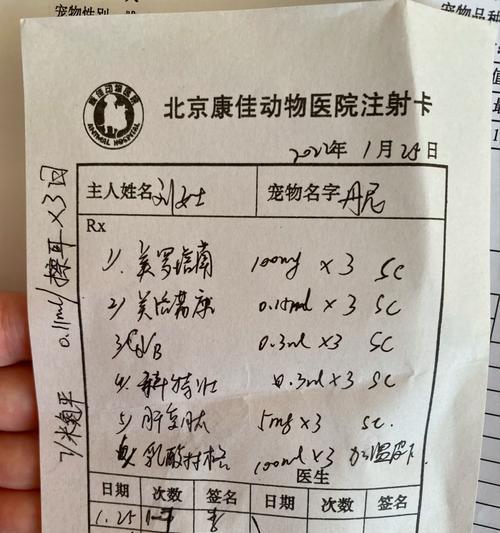 宠物性别
宠物品种
康佳动物医院
ANIMAL HOSPITAL
北京康佳动物医院注射卡
2022年 1月25日
主人姓名 刘女士 宠物名字 丹尼
Rx
1). 美罗培南 100mg ×3 SC
2) 美洛昔康 0.15ml ×3 SC
3) 0.3ml ×3 SC
4. 0.3ml ×3 SC
5) 肝复肽 5mg ×3 SC.
6) 乳酸林格 100ml ×3 加温皮下
7) 0.11ml/ ×3日
医生
日期 次数 签名 日期 次数 签名
1.25